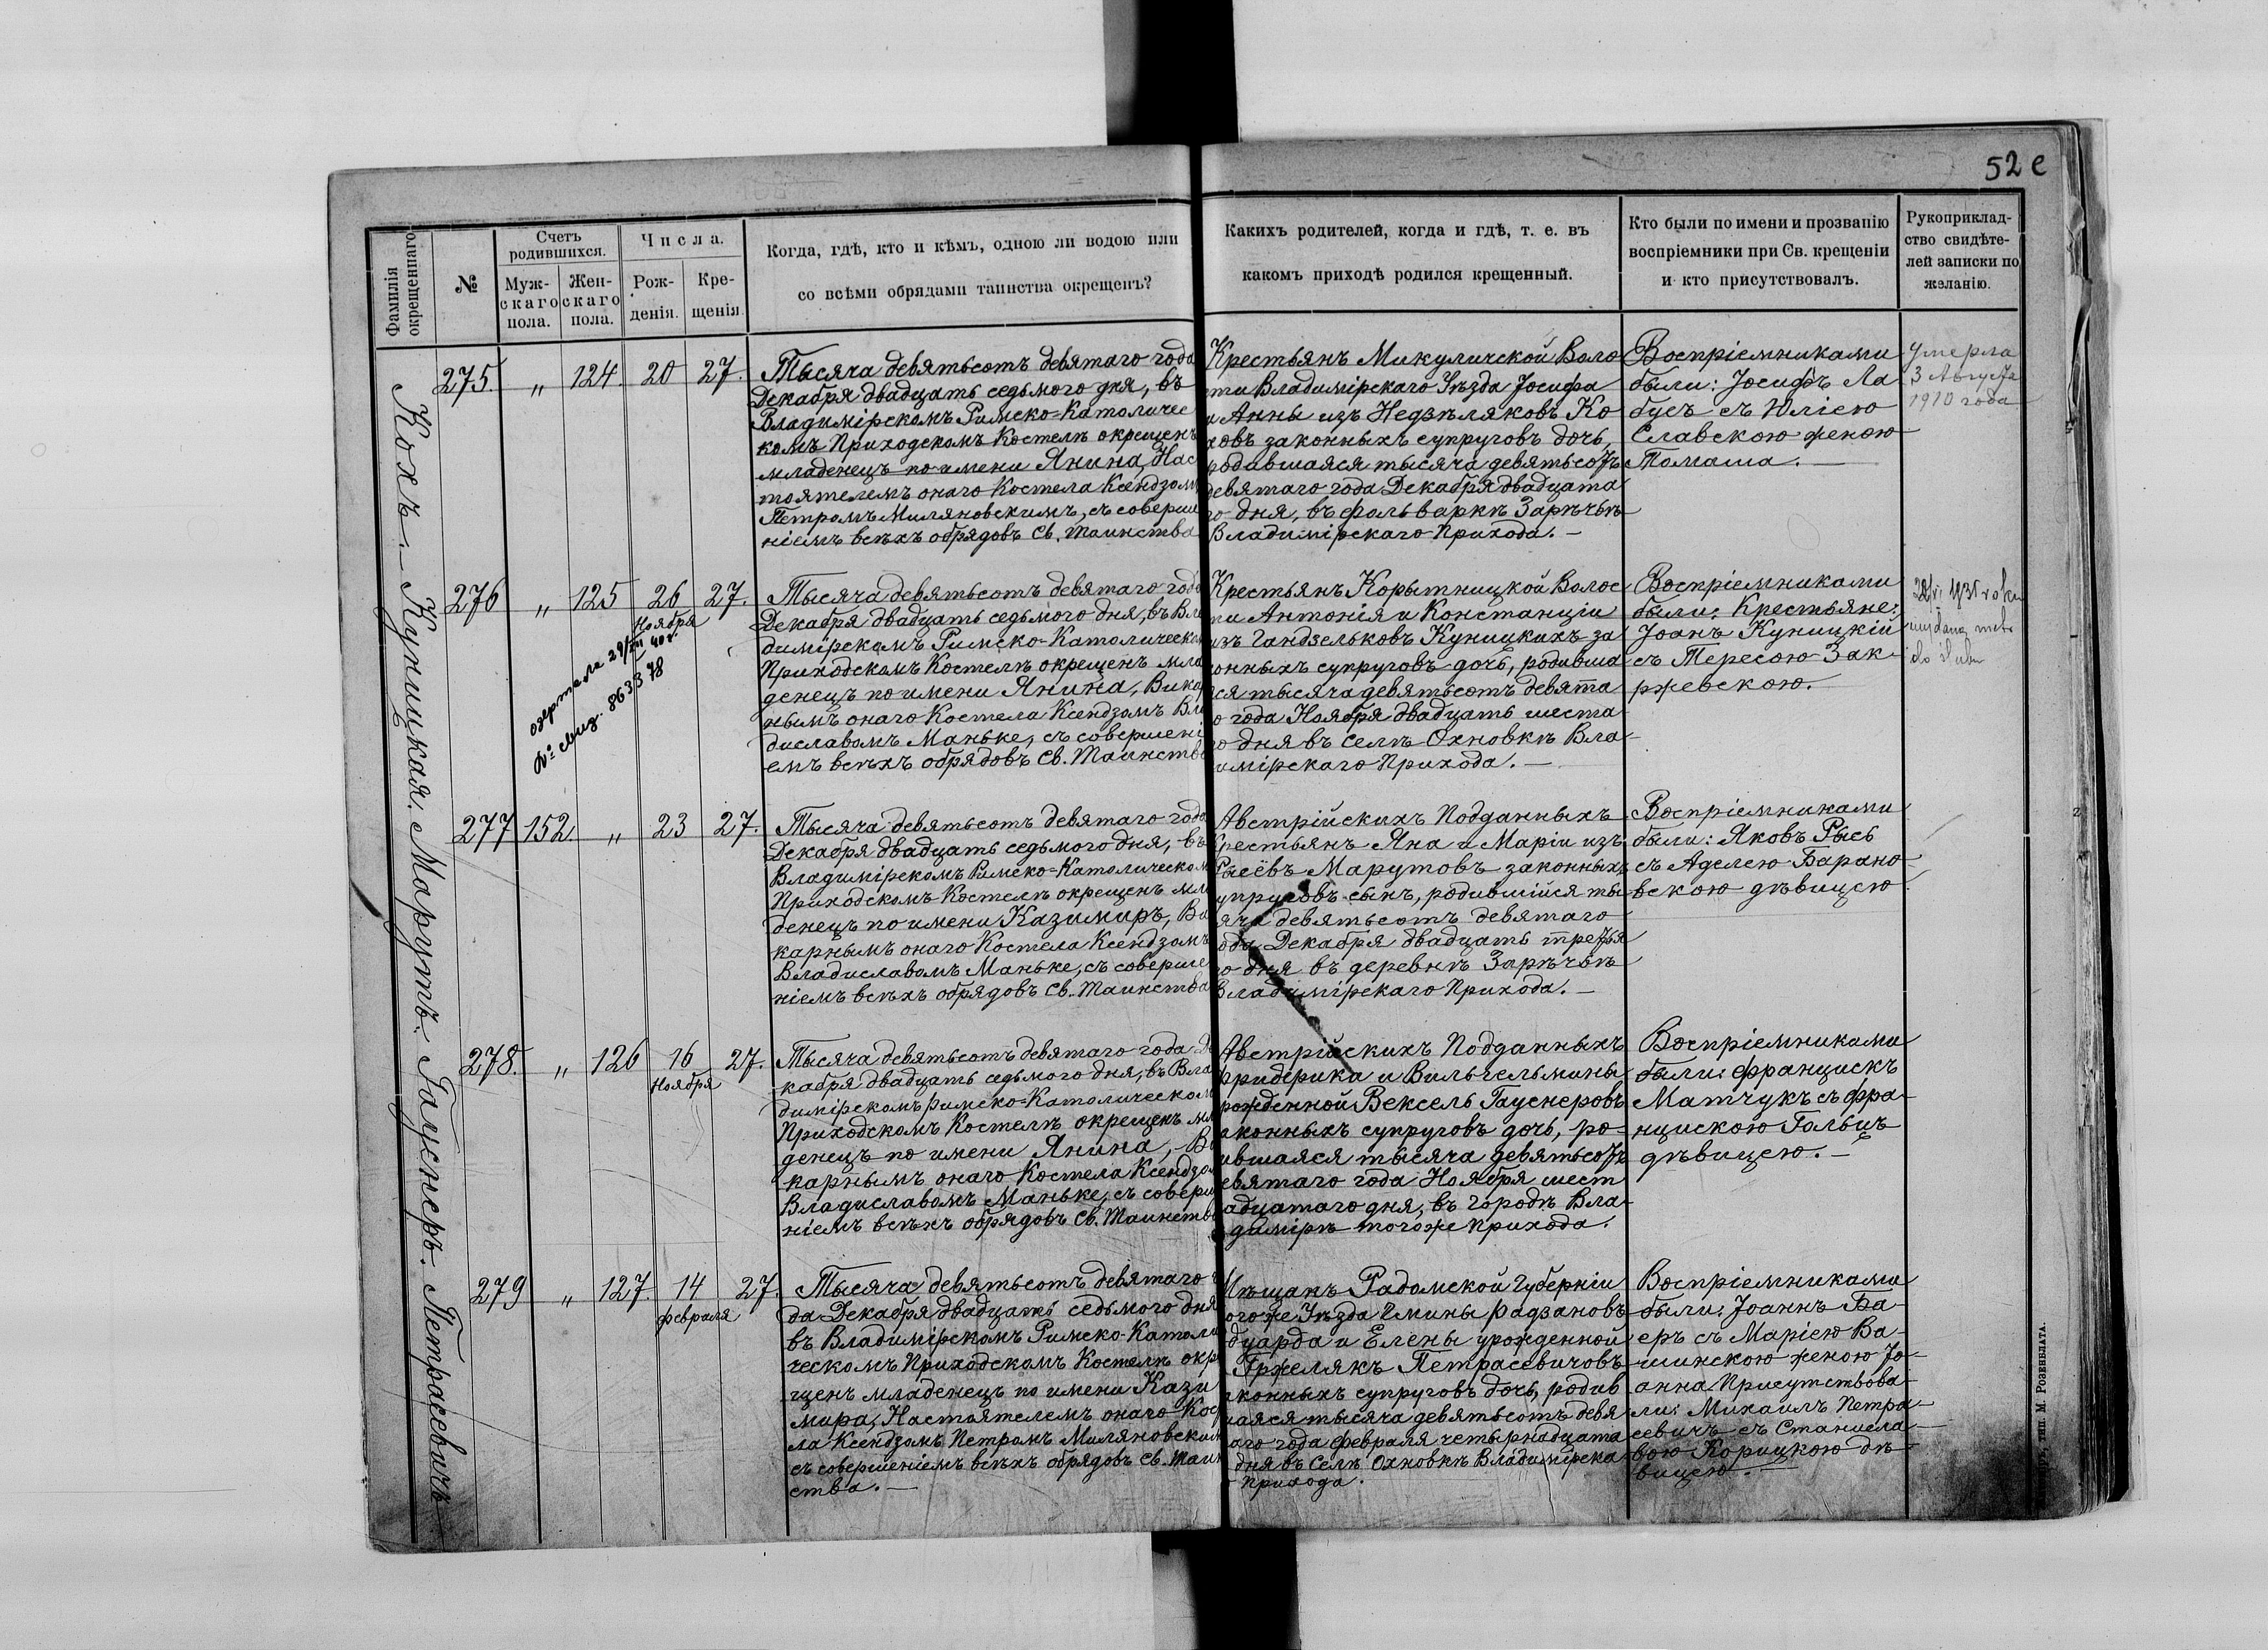 52 е
Фамилія окрещеннаго
№
Счетъ родившихся.
Мужскаго пола.
Женскаго пола.
Числа.
Рожденія.
Крещенія.
Когда, гдѣ, кто и кѣмъ, одною ли водою или
со всѣми обрядами таинства окрещенъ?
Какихъ родителей, когда и гдѣ, т. е. въ
какомъ приходѣ родился крещенный.
Кто были по имени и прозванію
воспріемники при Св. крещеніи
и кто присутствовалъ.
Рукоприклад-
ство свидѣте-
лей записки по
желанію.
Кохъ. Куницкая. Марутъ. Гауснеръ. Петрасевичъ
275. „ 124. 20 27.
Тысяча девятьсотъ девятаго года
Декабря двадцать седьмого дня, въ
Владимірскомъ Римско-Католичес
комъ Приходскомъ Костелѣ окрещенъ
младенецъ по имени Янина, Нас
тоятелемъ онаго Костела Ксендзомъ
Петромъ Миляновскимъ, съ соверше
ніемъ всѣхъ обрядовъ Св. Таинства
Крестьянъ Микуличской Воло
сти Владимірскаго Уѣзда Іосифа
и Анны изъ Недзѣляковъ Ко
ховъ законныхъ супруговъ дочь,
родившаяся тысяча девятьсотъ
девятаго года Декабря двадцата
го дня, въ фольваркѣ Зарѣчьѣ
Владимірскаго Прихода. —
Воспріемниками
были: Іосифъ Ла
бусъ съ Юліею
Славскою женою
Томаша. —
Умерла
3 Августа
1910 года
276 „ 125 26 27.
Ноября
29/XII 40 г.
№ 863378
Тысяча девятьсотъ девятаго года
Декабря двадцать седьмого дня, въ Вла
димірскомъ Римско-Католическомъ
Приходскомъ Костелѣ окрещенъ мла
денецъ по имени Янина, Викар
нымъ онаго Костела Ксендзомъ Вла
диславомъ Маньке, съ совершені
емъ всѣхъ обрядовъ Св. Таинства
Крестьянъ Корытницкой Волос
ти Антонія и Констанціи
изъ Гандзельковъ Куницкихъ за
конныхъ супруговъ дочь, родивша
яся тысяча девятьсотъ девята
го года Ноября двадцать шеста
го дня въ селѣ Охновкѣ Вла-
димірскаго Прихода. —
Воспріемниками
были: Крестьяне:
Іоанъ Куницкій
съ Тересою Зак-
ржевскою.
1931 roku
wydano metr.
do ślubu
277 152. „ 23 27.
Тысяча девятьсотъ девятаго года
Декабря двадцать седьмого дня, въ
Владимірскомъ Римско-Католическомъ
Приходскомъ Костелѣ окрещенъ мла
денецъ по имени Казимиръ, Ви
карнымъ онаго Костела Ксендзомъ
Владиславомъ Маньке, съ соверше
ніемъ всѣхъ обрядовъ Св. Таинства
Австрійскихъ Подданныхъ
Крестьянъ Яна и Маріи изъ
Рысёвъ Марутовъ законныхъ
супруговъ сынъ, родившійся ты
сяча девятьсотъ девятаго
года Декабря двадцать третья
го дня въ деревнѣ Зарѣчьѣ
Владимірскаго Прихода. —
Воспріемниками
были: Яковъ Рысь
съ Аделею Барано-
вскою дѣвицею.
278. „ 126 16 27.
Ноября
Тысяча девятьсотъ девятаго года Де
кабря двадцать седьмого дня, въ Вла
димірскомъ Римско-Католическомъ
Приходскомъ Костелѣ окрещенъ мла
денецъ по имени Янина, Ви
карнымъ онаго Костела Ксендзомъ
Владиславомъ Маньке, съ соверше
ніемъ всѣхъ обрядовъ Св. Таинства
Австрійскихъ Подданныхъ
Фридерика и Вильгельмины
рожденной Вексель Гауснеровъ
законныхъ супруговъ дочь, ро-
дившаяся тысяча девятьсотъ
девятаго года Ноября шест
надцатаго дня, въ городѣ Вла-
димірѣ тогоже Прихода.
Воспріемниками
были: Францискъ
Матчукъ съ Фра-
нцискою Гольцъ
дѣвицею. —
279 „ 127. 14 27.
Февраля
Тысяча девятьсотъ девятаго го
да Декабря двадцать седьмого дня
въ Владимірскомъ Римско-Католи
ческомъ Приходскомъ Костелѣ окре
щенъ младенецъ по имени Кази
мира, Настоятелемъ онаго Косте
ла Ксендзомъ Петромъ Миляновскимъ
съ совершеніемъ всѣхъ обрядовъ Св. Таин
ства. —
Мѣщанъ Радомской Губерніи
тогоже Уѣзда Гмины Радзановъ
Эдуарда и Елены урожденной
Гржелякъ Петрасевичовъ
законныхъ супруговъ дочь, родив
шаяся тысяча девятьсотъ девя
таго года Февраля четырнадцата
го дня въ Селѣ Охновкѣ Владимірска
го Прихода.
Воспріемниками
были: Іоаннъ Ба-
еръ съ Маріею Ва-
шинскою женою Іо-
анна. Присутствова-
ли: Михаилъ Петра-
севичъ съ Станисла-
вою Корицкою дѣ-
вицею. —
тип. М. Розенблата.